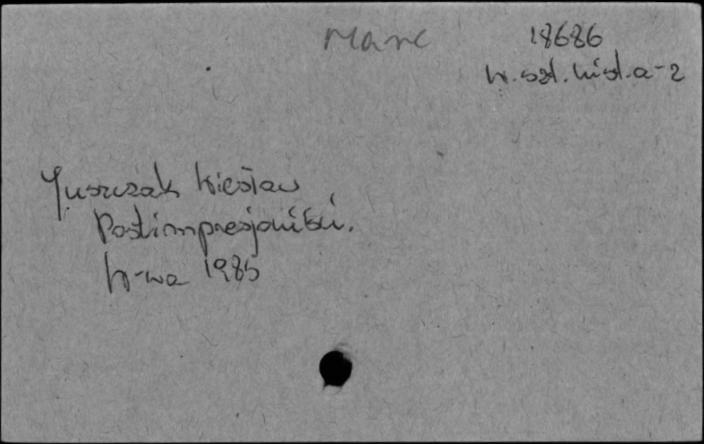 Marc
18686
W. szt. hist. a-2
Juszczak Wiesław
Postimpresjoniści.
W-wa 1985